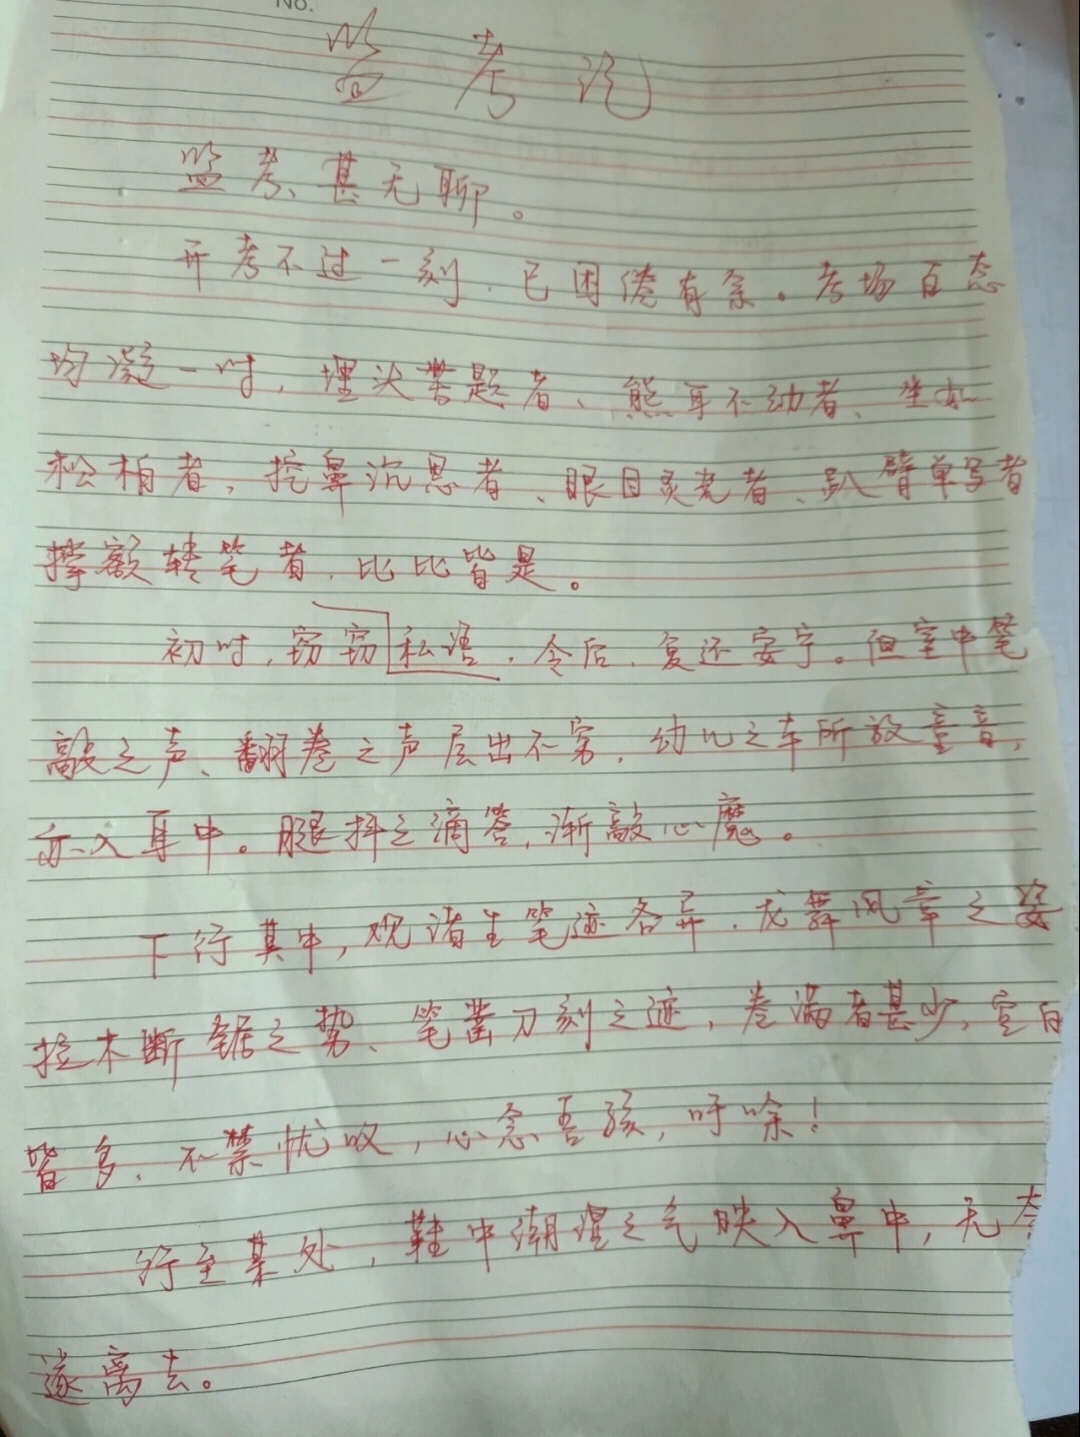 No.
监考记
监考、甚无聊。
开考不过一刻，已困倦有余。考场百态
均凝一时，埋头苦题者、熊耳不动者、坐如
松柏者，挖鼻沉思者、眼目灵光者、趴臂单写者
撑额转笔者，比比皆是。
初时，窃窃私语，令后，复还安宁。但室中笔
敲之声、翻卷之声层出不穷，幼儿之车所放童音，
亦入耳中。腿抖之滴答，渐敲心魔。
下行其中，观诸生笔迹各异，龙舞凤章之姿
拉木断锯之势、笔凿刀刻之迹，卷满者甚少，空白
皆多，不禁忧叹，心念吾孩，吁唋！
行至某处，鞋中潮湿之气映入鼻中，无奈
遂离去。